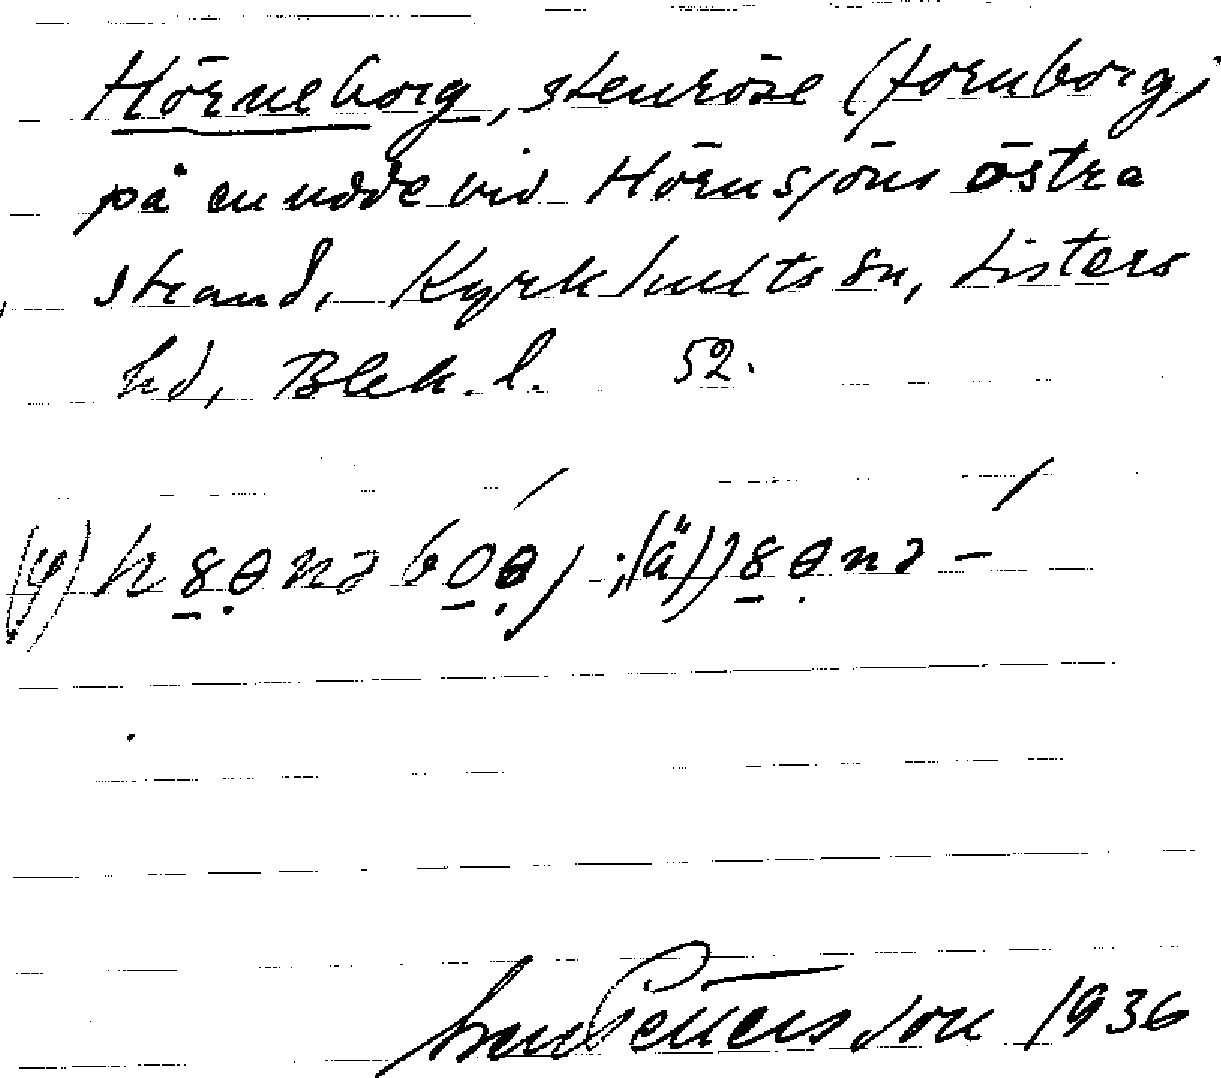 Hörneborg, stenröse (fornborg)
på en udde vid Hörnsjöns östra
strand, Kyrkhults sn, Listers
hd, Blek. l. 52.
(y) h8ənə boəj ; (ä) j8ənə –
Pettersson 1936